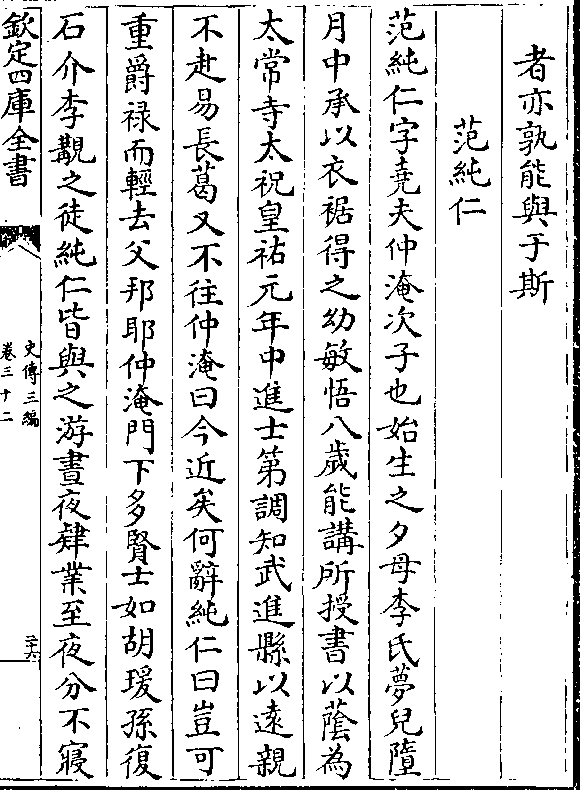 者亦孰能與于斯
范純仁
范純仁字堯夫仲淹次子也始生之夕母李氏夢兒墮
月中承以衣裾得之幼敏悟八歲能講所授書以蔭為
太常寺太祝皇祐元年中進士第調知武進縣以遠親
不赴易長葛又不往仲淹曰今近矣何辭純仁曰豈可
重爵祿而輕去父邦耶仲淹門下多賢士如胡瑗孫復
石介李覯之徒純仁皆與之游晝夜肄業至夜分不寢
欽定四庫全書
史傳三編
卷三十二
二十六